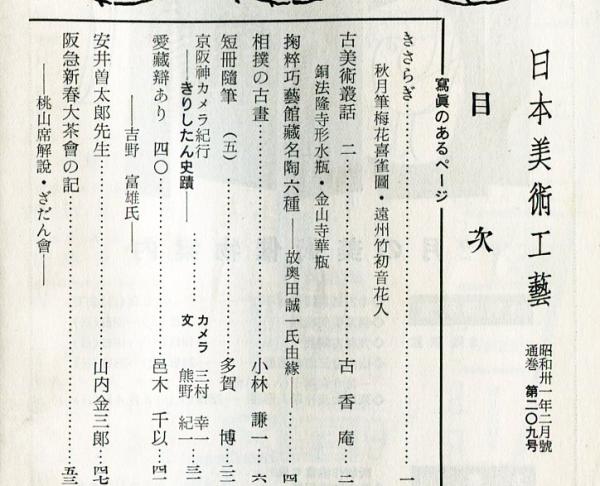 日本美術工藝
昭和卅一年二月號
通巻 第二〇九号
目次
寫眞のあるページ
きさらぎ……一
秋月筆梅花喜雀圖・遠州竹初音花入
古美術叢話 二……古香庵……二
銅法隆寺形水瓶・金山寺華瓶
掬粹巧藝館藏名陶六種――故奥田誠一氏由緣……四
相撲の古畫……小林謙一……六
短冊隨筆 (五)……多賀博……二二
京阪神カメラ紀行 カメラ 三村幸一
――きりしたん史蹟―― 文 熊野紀一……三一
愛藏辯あり 四〇……邑木千以……四一
――吉野富雄氏
安井曽太郎先生……山内金三郎……四七
阪急新春大茶會の記……五三
――桃山席解説・ざだん會――